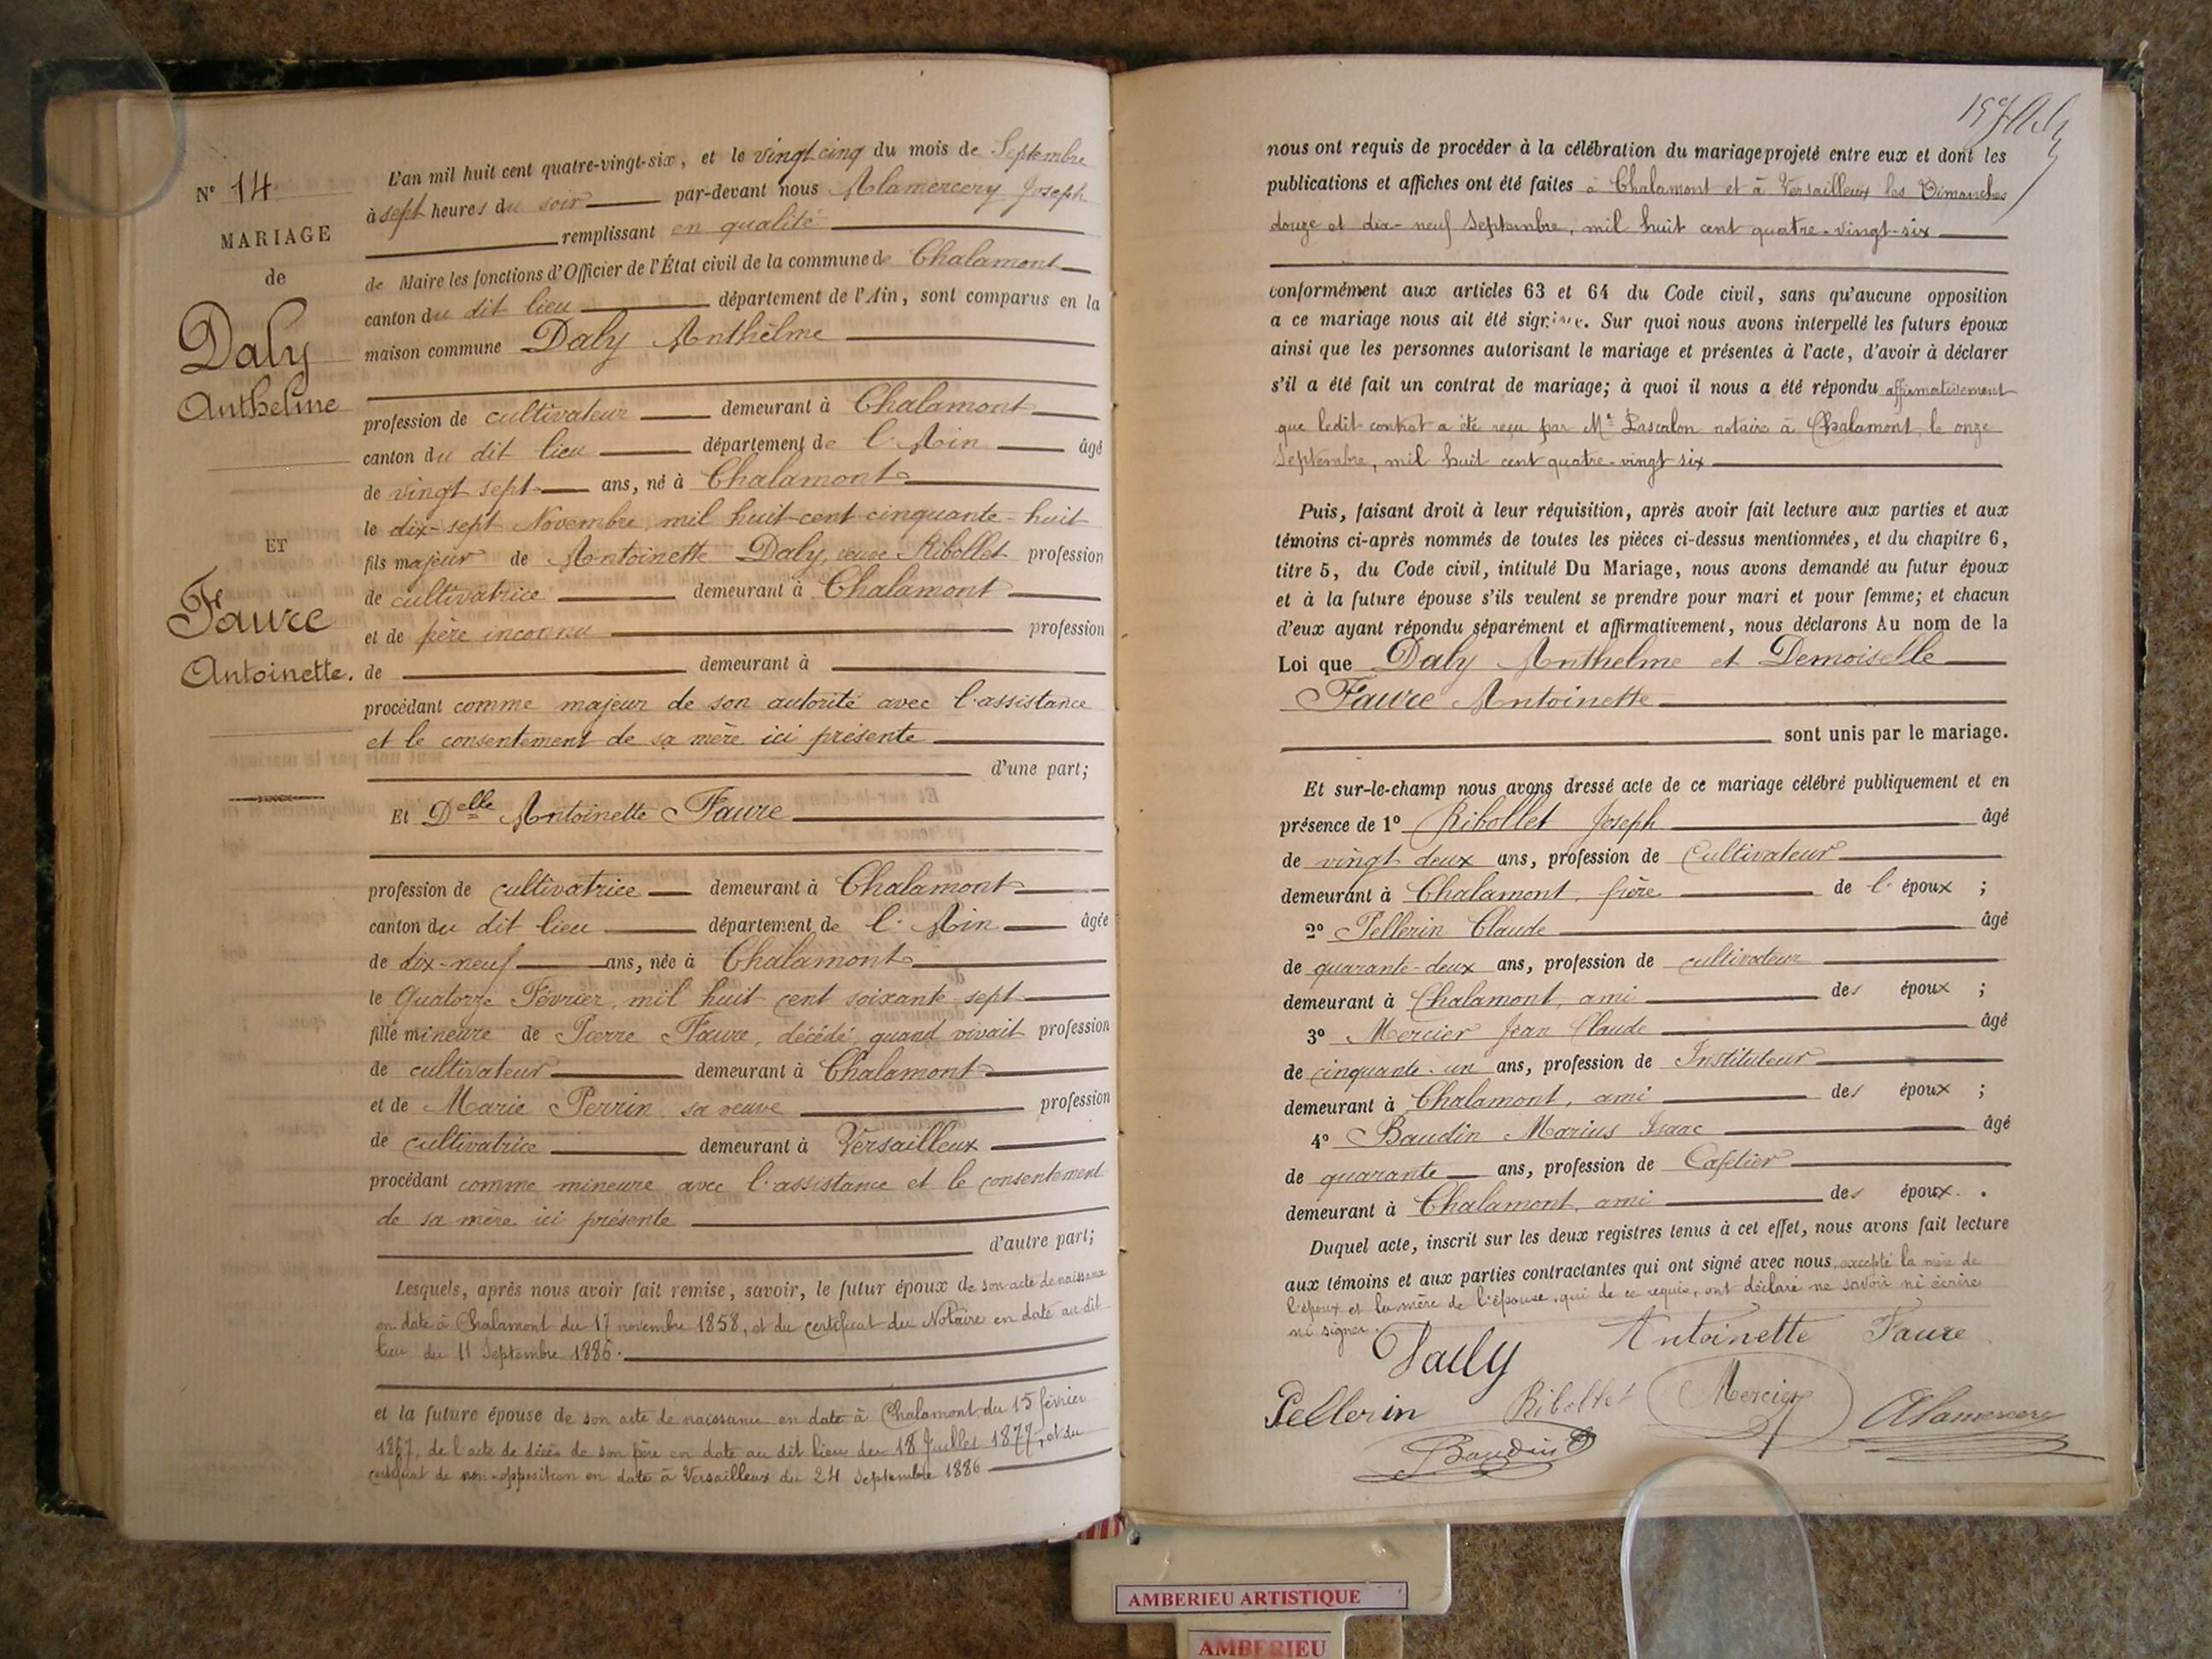 N° 14
MARIAGE
de
Daly
Anthelme
ET
Faure
Antoinette.
L'an mil huit cent quatre-vingt-six, et le vingt cinq du mois de Septembre
à sept heures du soir par-devant nous Alamercery Joseph
remplissant en qualité
de Maire les fonctions d'Officier de l'État civil de la commune de Chalamont
canton du dit lieu département de l'Ain, sont comparus en la
maison commune Daly Anthelme
profession de cultivateur demeurant à Chalamont
canton du dit lieu département de l'Ain âgé
de vingt sept ans, né à Chalamont
le dix-sept Novembre, mil huit-cent cinquante-huit
fils majeur de Antoinette Daly, veuve Ribollet profession
de cultivatrice demeurant à Chalamont
et de père inconnu profession
de demeurant à
procédant comme majeur de son autorité avec l'assistance
et le consentement de sa mère ici présente
d'une part;
Et Delle Antoinette Faure
profession de cultivatrice demeurant à Chalamont
canton du dit lieu département de l'Ain âgée
de dix-neuf ans, née à Chalamont
le Quatorze Février, mil huit cent soixante-sept
fille mineure de Pierre Faure, décédé, quand vivait profession
de cultivateur demeurant à Chalamont
et de Marie Perrin sa veuve profession
de cultivatrice demeurant à Versailleux
procédant comme mineure avec l'assistance et le consentement
de sa mère ici présente
d'autre part;
Lesquels, après nous avoir fait remise, savoir, le futur époux de son acte de naissance
en date à Chalamont du 17 novembre 1858, et du certificat du Notaire en date au dit
lieu du 11 Septembre 1886.
et la future épouse de son acte de naissance en date à Chalamont du 15 février
1867, de l'acte de décès de son père en date au dit lieu du 18 Juillet 1877, et du
certificat de non-opposition en date à Versailleux du 24 Septembre 1886
nous ont requis de procéder à la célébration du mariage projeté entre eux et dont les
publications et affiches ont été faites à Chalamont et à Versailleux les Dimanches
douze et dix-neuf Septembre, mil huit cent quatre-vingt-six
conformément aux articles 63 et 64 du Code civil, sans qu'aucune opposition
a ce mariage nous ait été Sur quoi nous avons interpellé les futurs époux
ainsi que les personnes autorisant le mariage et présentes à l'acte, d'avoir à déclarer
s'il a été fait un contrat de mariage; à quoi il nous a été répondu affirmativement
que ledit contrat a été reçu par Me Lascalon notaire à Chalamont, le onze
Septembre, mil huit cent quatre-vingt six
Puis, faisant droit à leur réquisition, après avoir fait lecture aux parties et aux
témoins ci-après nommés de toutes les pièces ci-dessus mentionnées, et du chapitre 6,
titre 5, du Code civil, intitulé Du Mariage, nous avons demandé au futur époux
et à la future épouse s'ils veulent se prendre pour mari et pour femme; et chacun
d'eux ayant répondu séparément et affirmativement, nous déclarons Au nom de la
Loi que Daly Anthelme et Demoiselle
Faure Antoinette
sont unis par le mariage.
Et sur-le-champ nous avons dressé acte de ce mariage célébré publiquement et en
présence de 1° Ribollet Joseph âgé
de vingt deux ans, profession de Cultivateur
demeurant à Chalamont, frère de l'époux ;
2° Pellerin Claude âgé
de quarante-deux ans, profession de cultivateur
demeurant à Chalamont, ami des époux ;
3° Mercier Jean Claude âgé
de cinquante-un ans, profession de Instituteur
demeurant à Chalamont, ami des époux ;
4° Baudin Marius Isaac âgé
de quarante ans, profession de Cafetier
demeurant à Chalamont, ami des époux.
Duquel acte, inscrit sur les deux registres tenus à cet effet, nous avons fait lecture
aux témoins et aux parties contractantes qui ont signé avec nous, excepté la mère de
l'époux et la mère de l'épouse, qui de ce requis, ont déclaré ne savoir ni écrire
ni signer.
Dally Antoinette Faure
Pellerin Ribollet Mercier Alamercery
Baudin
AMBERIEU ARTISTIQUE
AMBERIEU